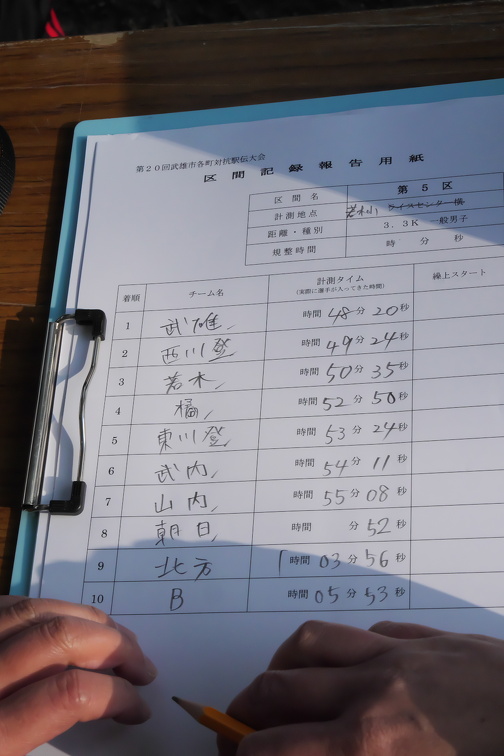 第20回武雄市各町対抗駅伝大会
区間記録報告用紙
区間名 第5区
計測地点 若木小 ライスセンター横
距離・種別 3.3K 一般男子
規整時間 時 分 秒
着順 チーム名 計測タイム (実際に選手が入ってきた時間) 繰上スタート
1 武雄 時間 48分 20秒
2 西川登 時間 49分 24秒
3 若木 時間 50分 35秒
4 橘 時間 52分 50秒
5 東川登 時間 53分 24秒
6 武内 時間 54分 11秒
7 山内 時間 55分 08秒
8 朝日 時間 分 52秒
9 北方 1時間 03分 56秒
10 B 時間 05分 53秒